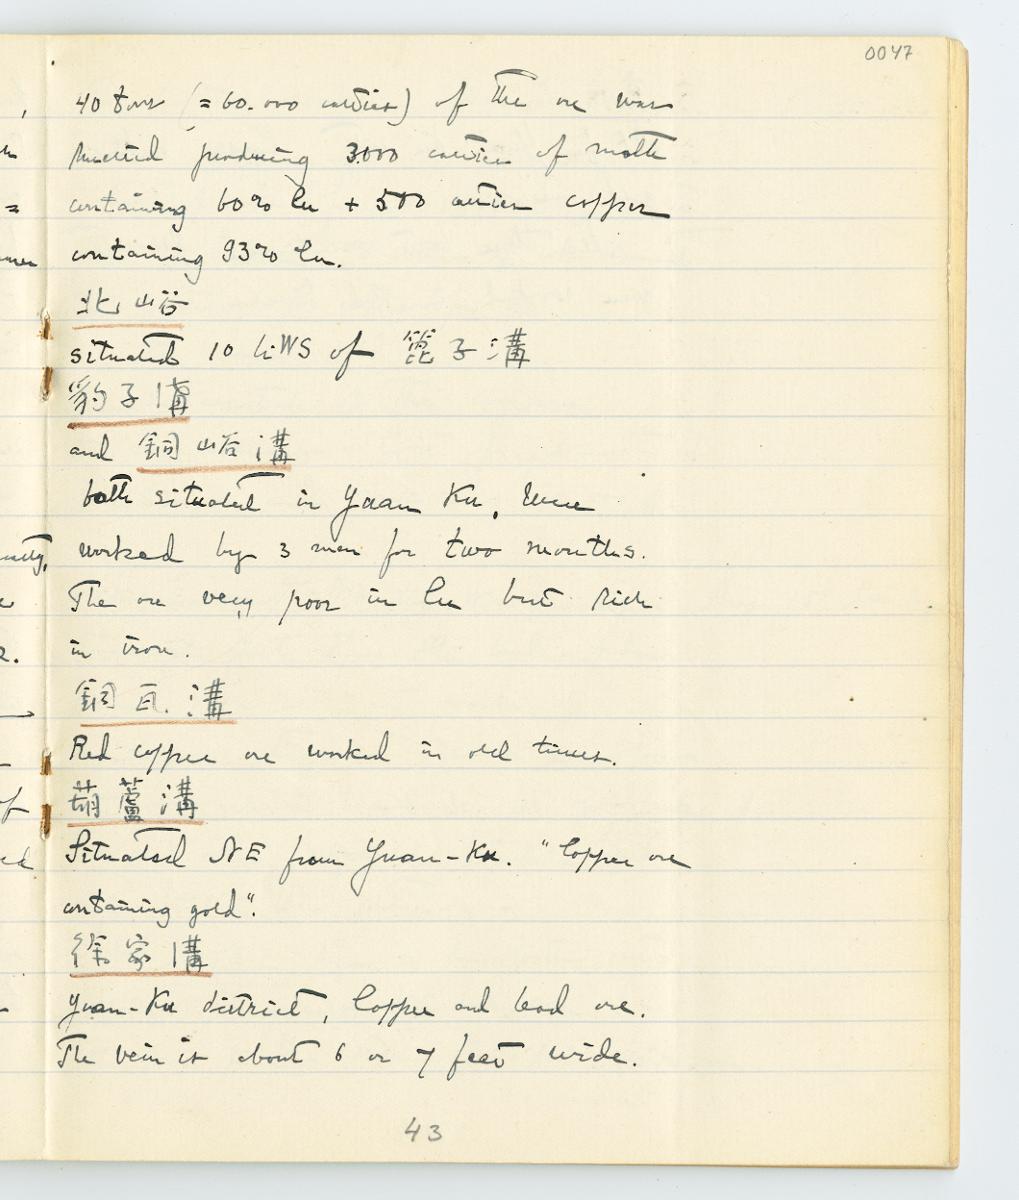 0047
40 tons (= 60.000 catties) of the ore was
smelted producing 3000 catties of matte
containing 60% Cu + 500 catties copper
containing 93% Cu.
北峪
situated 10 li WS of 篦子溝
豹子溝
and 銅峪溝
both situated in Yuan Ku, were
worked by 3 men for two months.
The ore very poor in Cu but rich
in iron.
銅瓦溝
Red copper ore worked in old times.
葫蘆溝
Situated NE from Yuan-Ku. "Copper ore
containing gold".
徐家溝
Yuan-Ku district, Copper and lead ore.
The vein is about 6 or 7 feet wide.
43